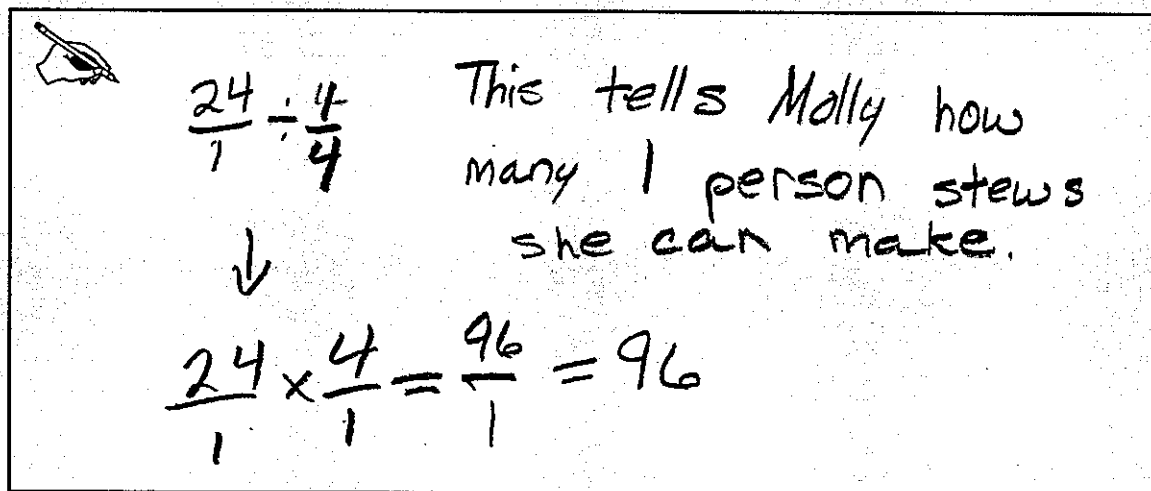 24/1 ÷ 4/4
This tells Molly how
many 1 person stews
she can make.
↓
24/1 × 4/1 = 96/1 = 96